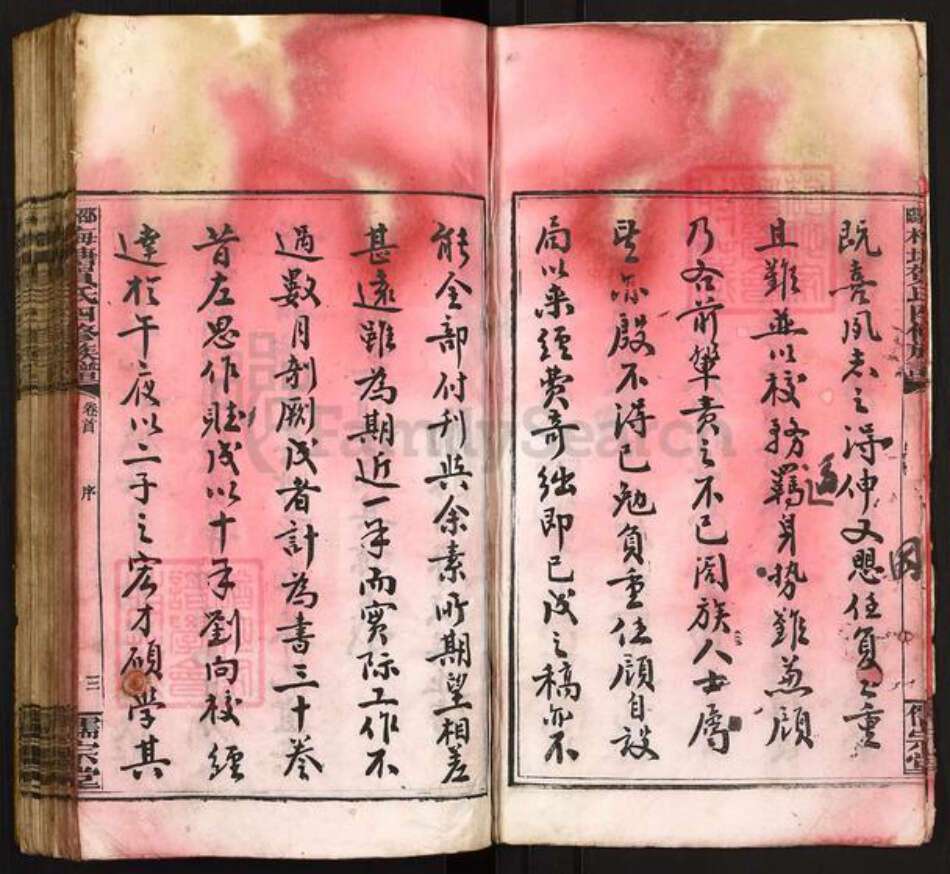 既喜夙志之得伸又懇任負之重
且難並以校務羈身勢難兼顧
乃各前輩責之不已闔族人士屬
望亦殷不得已勉負重任顧自設
局以來經費奇絀即已成之稿亦不
能全部付刊與余素所期望相差
甚遠雖為期近一年而實际工作不
過數月剞劂成者計為書三十卷
昔左思作賦成以十年劉向校經
達於午夜以二子之宏才碩學其
氏四修族譜
卷首
序
三
儒宗堂
FamilySearch